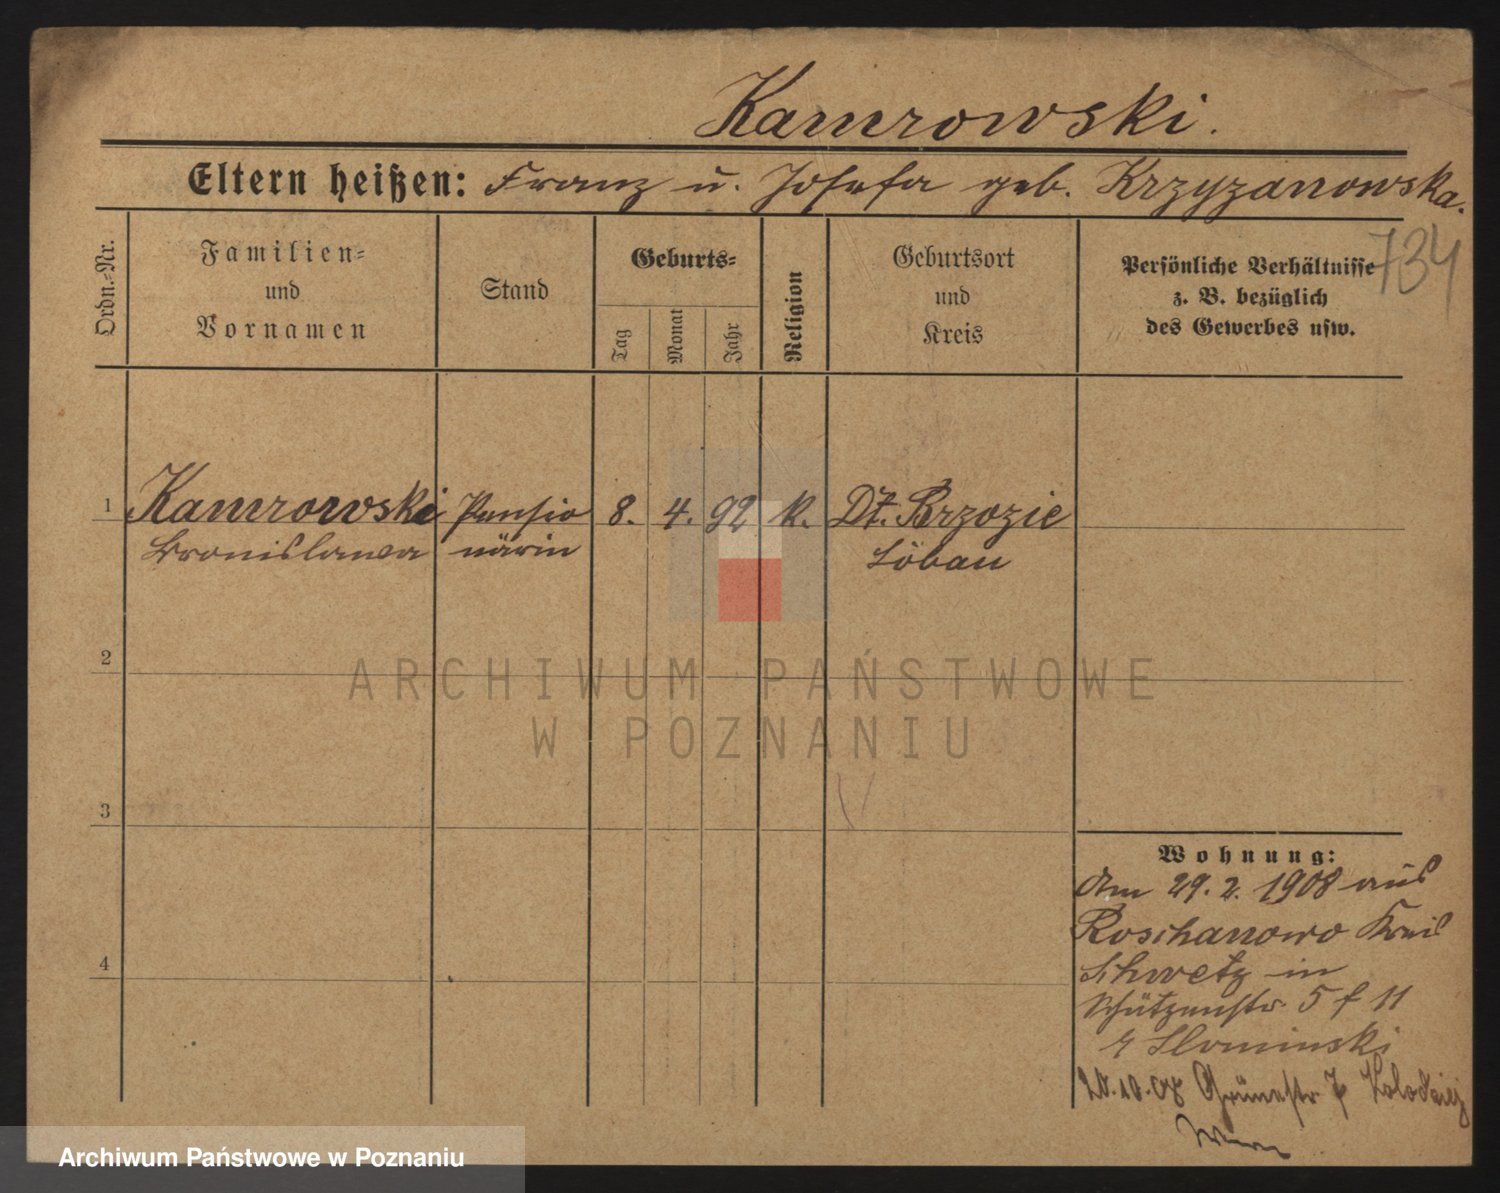 Kamrowski.
Eltern heißen: Franz u. Josefa geb. Krzyzanowska.
734
Ordn.-Nr.
Familien- und Vornamen
Stand
Geburts-
Tag
Monat
Jahr
Religion
Geburtsort und Kreis
Persönliche Verhältnisse z. B. bezüglich des Gewerbes usw.
1 Kamrowski Pensio 8. 4. 92 k. Dt. Brzozie
Bronislawa närin Löbau
2
3
4
Wohnung:
Am 29. 2. 1908 aus
Roschanowo Kreis
Schwetz in
Schützenstr. 5 f 11
Slominski
20.10.08 Grünestr 7 Kolodziej
ARCHIWUM PAŃSTWOWE
W POZNANIU
Archiwum Państwowe w Poznaniu